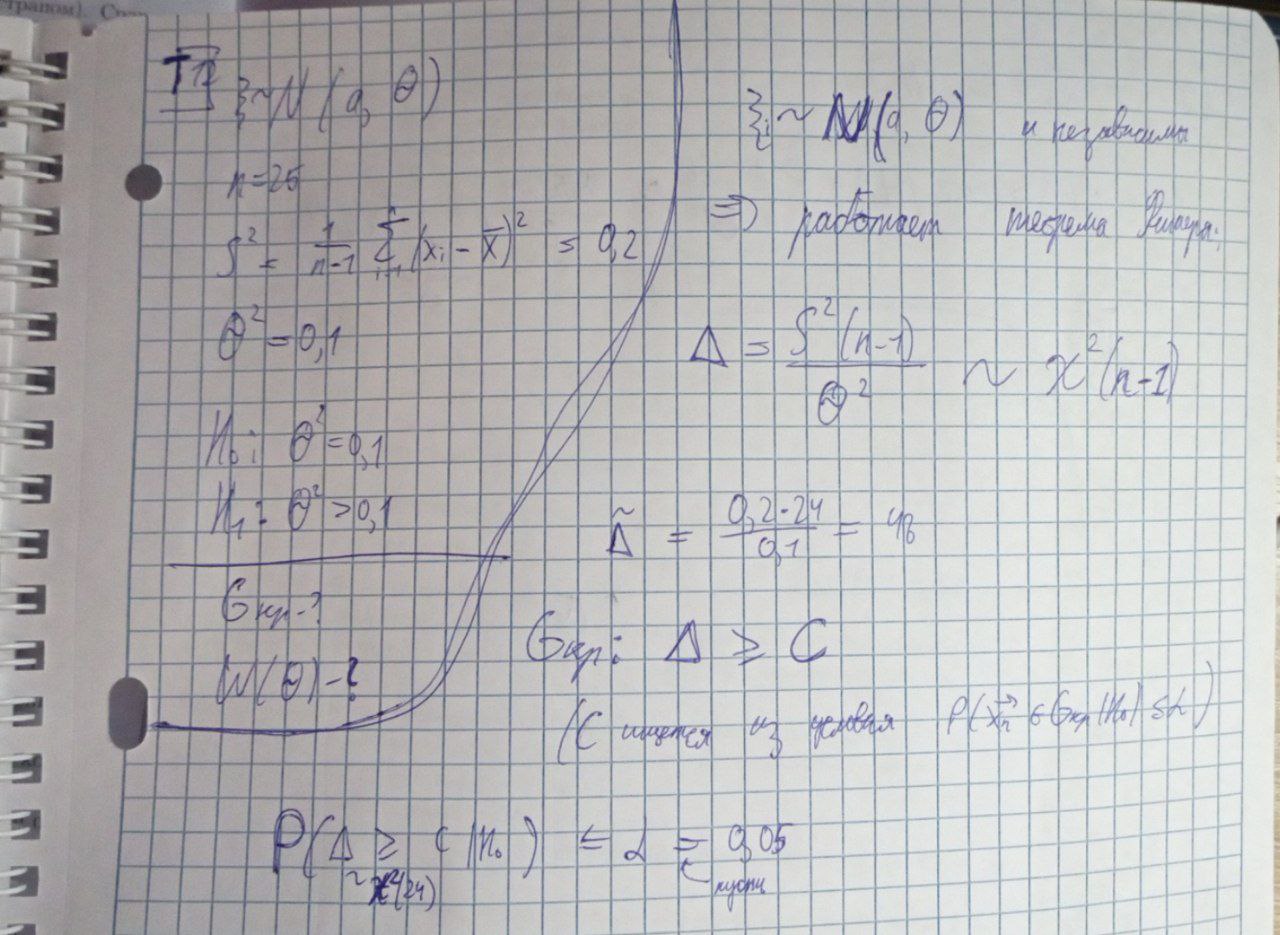 страпом). Спа
T12
ξ ~ N(a, θ)
n=25
S² = 1/(n-1) Σ_{i=1}^{n} (x_i - x̄)² = 0,2
θ² = 0,1
H₀: θ² = 0,1
H₁: θ² > 0,1
Gкр-?
W(θ)-?
ξ_i ~ N(a, θ) и независимы
⇒ работает теорема Фишера:
Δ = S²(n-1)/θ² ~ χ²(n-1)
Δ̃ = 0,2·24/0,1 = 48
Gкр: Δ ≥ C
(C ищется из условия P(x⃗_n ∈ Gкр|H₀) ≤ α)
P(Δ ≥ C |H₀) ≤ α = 0,05
~χ²(24)
пусть